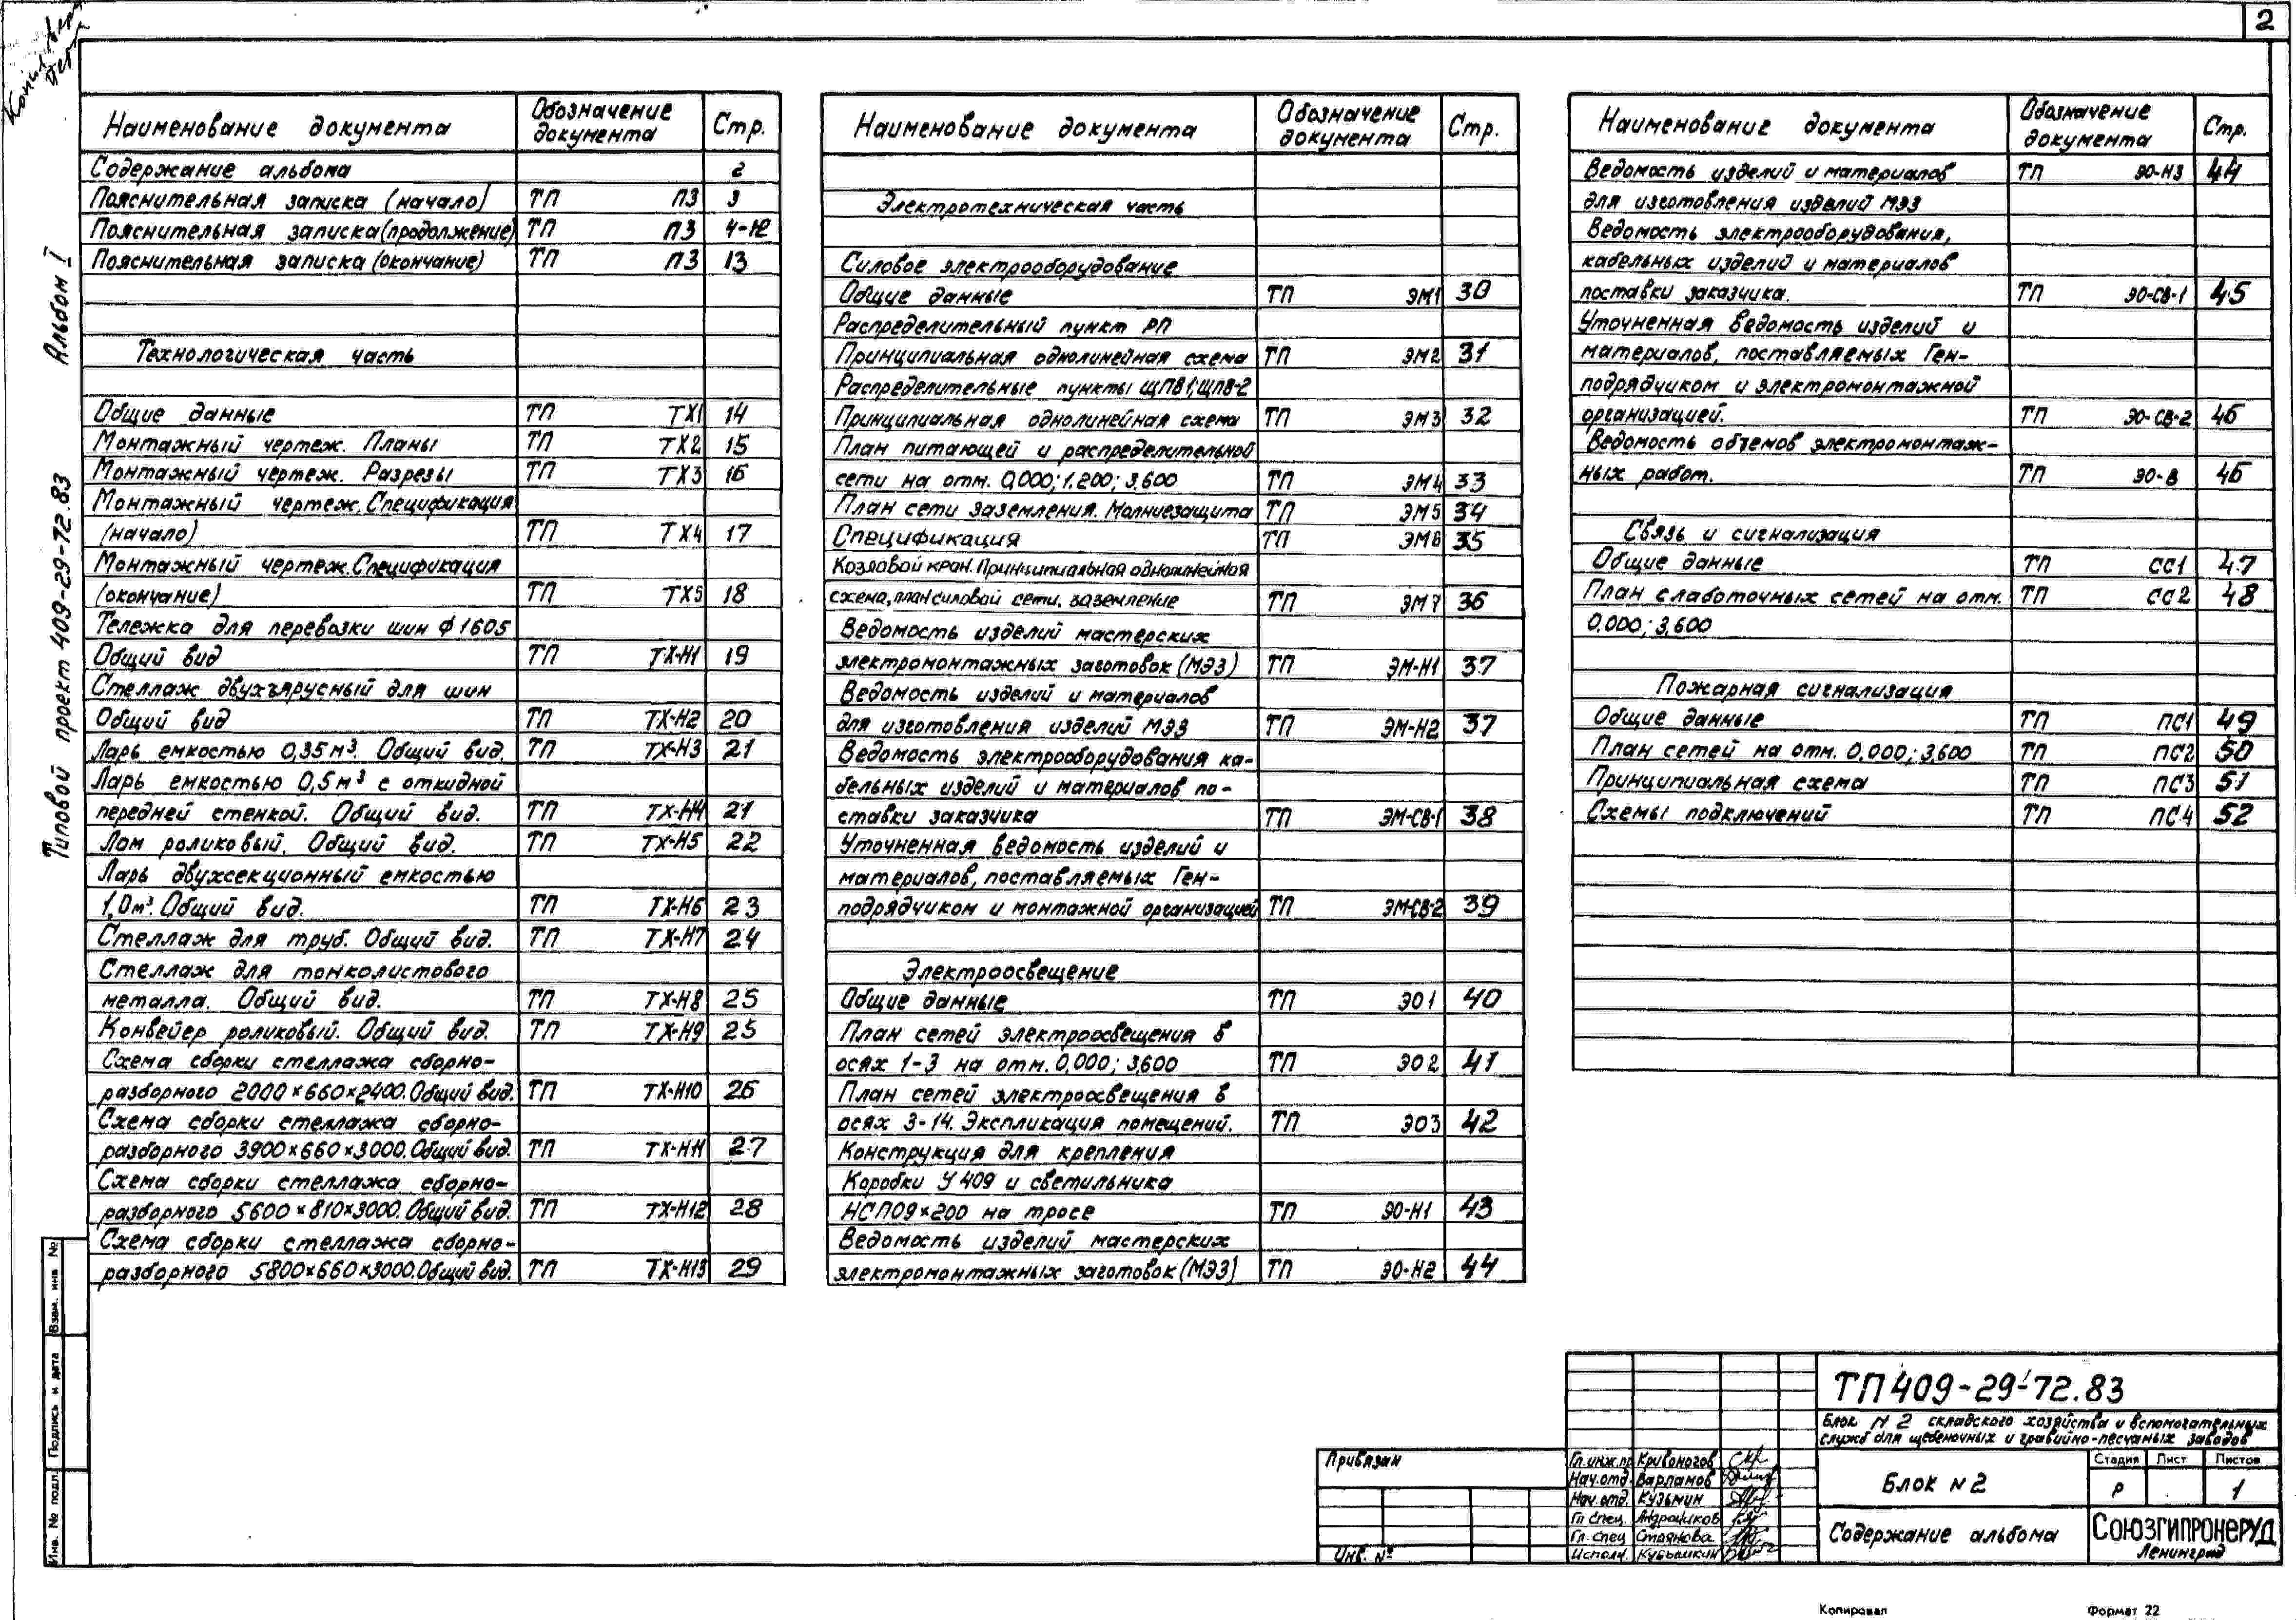 2
Альбом I
Типовой проект 409-29-72.83
Наименование документа Обозначение документа Стр.
Содержание альбома 2
Пояснительная записка (начало) ТП ПЗ 3
Пояснительная записка (продолжение) ТП ПЗ 4-12
Пояснительная записка (окончание) ТП ПЗ 13
Технологическая часть
Общие данные ТП ТХ1 14
Монтажный чертеж. Планы ТП ТХ2 15
Монтажный чертеж. Разрезы ТП ТХ3 16
Монтажный чертеж. Спецификация
(начало) ТП ТХ4 17
Монтажный чертеж. Спецификация
(окончание) ТП ТХ5 18
Тележка для перевозки шин ф 1605
Общий вид ТП ТХ-Н1 19
Стеллаж двухъярусный для шин
Общий вид ТП ТХ-Н2 20
Ларь емкостью 0,35 м³. Общий вид. ТП ТХ-Н3 21
Ларь емкостью 0,5 м³ с откидной
передней стенкой. Общий вид. ТП ТХ-Н4 21
Лом роликовый. Общий вид. ТП ТХ-Н5 22
Ларь двухсекционный емкостью
1,0 м³. Общий вид. ТП ТХ-Н6 23
Стеллаж для труб. Общий вид. ТП ТХ-Н7 24
Стеллаж для тонколистового
металла. Общий вид. ТП ТХ-Н8 25
Конвейер роликовый. Общий вид. ТП ТХ-Н9 25
Схема сборки стеллажа сборно-
разборного 2000×660×2400. Общий вид. ТП ТХ-Н10 26
Схема сборки стеллажа сборно-
разборного 3900×660×3000. Общий вид. ТП ТХ-Н11 27
Схема сборки стеллажа сборно-
разборного 5600×810×3000. Общий вид. ТП ТХ-Н12 28
Схема сборки стеллажа сборно-
разборного 5800×660×3000. Общий вид. ТП ТХ-Н13 29
Наименование документа Обозначение документа Стр.
Электротехническая часть
Силовое электрооборудование
Общие данные ТП ЭМ1 30
Распределительный пункт РП
Принципиальная однолинейная схема ТП ЭМ2 31
Распределительные пункты ЩПВ1; ЩПВ-2
Принципиальная однолинейная схема ТП ЭМ3 32
План питающей и распределительной
сети на отм. 0,000; 1.200; 3,600 ТП ЭМ4 33
План сети заземления. Молниезащита ТП ЭМ5 34
Спецификация ТП ЭМ6 35
Козловой кран. Принципиальная однолинейная
схема, план силовой сети, заземление ТП ЭМ7 36
Ведомость изделий мастерских
электромонтажных заготовок (МЭЗ) ТП ЭМ-Н1 37
Ведомость изделий и материалов
для изготовления изделий МЭЗ ТП ЭМ-Н2 37
Ведомость электрооборудования ка-
бельных изделий и материалов по-
ставки заказчика ТП ЭМ-СВ-1 38
Уточненная ведомость изделий и
материалов, поставляемых Ген-
подрядчиком и монтажной организацией ТП ЭМ-СВ-2 39
Электроосвещение
Общие данные ТП ЭО1 40
План сетей электроосвещения в
осях 1-3 на отм. 0,000; 3,600 ТП ЭО2 41
План сетей электроосвещения в
осях 3-14. Экспликация помещений. ТП ЭО3 42
Конструкция для крепления
Коробки У409 и светильника
НСП09×200 на тросе ТП ЭО-Н1 43
Ведомость изделий мастерских
электромонтажных заготовок (МЭЗ) ТП ЭО-Н2 44
Наименование документа Обозначение документа Стр.
Ведомость изделий и материалов ТП ЭО-Н3 44
для изготовления изделий МЭЗ
Ведомость электрооборудования,
кабельных изделий и материалов
поставки заказчика. ТП ЭО-СВ-1 45
Уточненная ведомость изделий и
материалов, поставляемых Ген-
подрядчиком и электромонтажной
организацией. ТП ЭО-СВ-2 46
Ведомость объемов электромонтаж-
ных работ. ТП ЭО-В 46
Связь и сигнализация
Общие данные ТП СС1 47
План слаботочных сетей на отм. ТП СС2 48
0,000; 3,600
Пожарная сигнализация
Общие данные ТП ПС1 49
План сетей на отм. 0,000; 3,600 ТП ПС2 50
Принципиальная схема ТП ПС3 51
Схемы подключений ТП ПС4 52
Взам. инв №
Подпись и дата
Инв. № подл.
Привязан
Инв. №
Гл. инж. пр Кривоногов
Нач. отд. Варламов
Нач. отд. Кузьмин
Гл спец. Андрончиков
Гл. спец Стоянова
Исполн. Кубышкин
ТП 409-29-72.83
Блок N 2 складского хозяйства и вспомогательных
служб для щебеночных и гравийно-песчаных заводов
Блок N 2
Стадия Лист Листов
Р 1
Содержание альбома
СОЮЗГИПРОНЕРУД
Ленинград
Копировал Формат 22